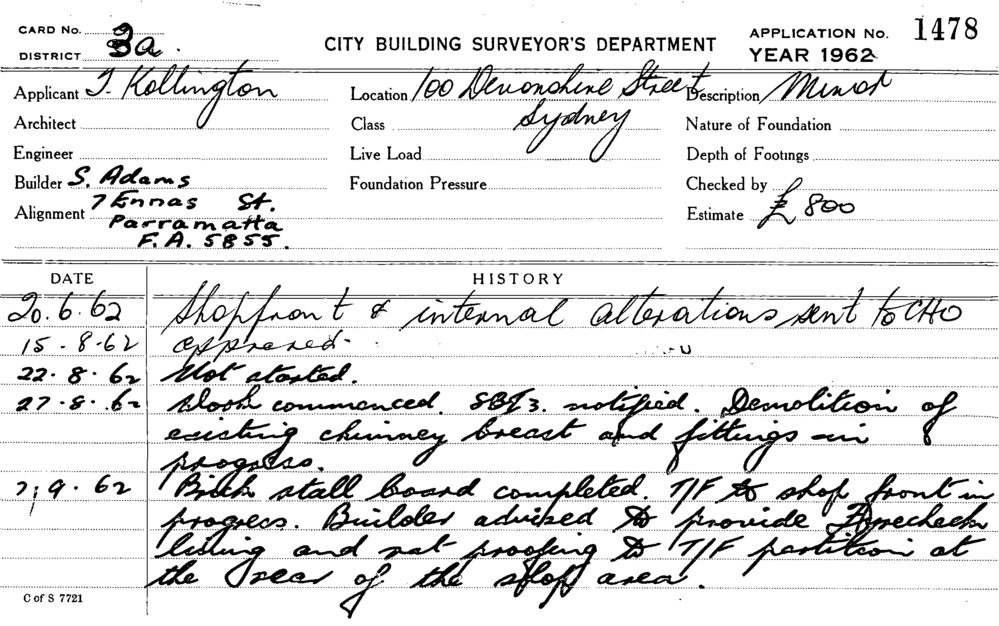 CARD No.
DISTRICT 3a.
CITY BUILDING SURVEYOR'S DEPARTMENT
APPLICATION No. 1478
YEAR 1962
Applicant T. Kollington
Location 100 Devonshire Street
Sydney
Description Minor
Architect
Class
Nature of Foundation
Engineer
Live Load
Depth of Footings
Builder S. Adams
Foundation Pressure
Checked by
Alignment 7 Ennas St.
Parramatta
F.A. 5855.
Estimate £ 800
DATE HISTORY
20.6.62 Shopfront & internal alterations sent to CHO
15.8.62 approved.
22.8.62 Not started.
27.8.62 Work commenced. notified. Demolition of
existing chimney breast and fittings in
progress.
7.9.62 Brick stall board completed. T/F to shop front in
progress. Builder advised to provide Firecheck
lining and rat proofing to T/F partition at
the rear of the shop area.
C of S 7721